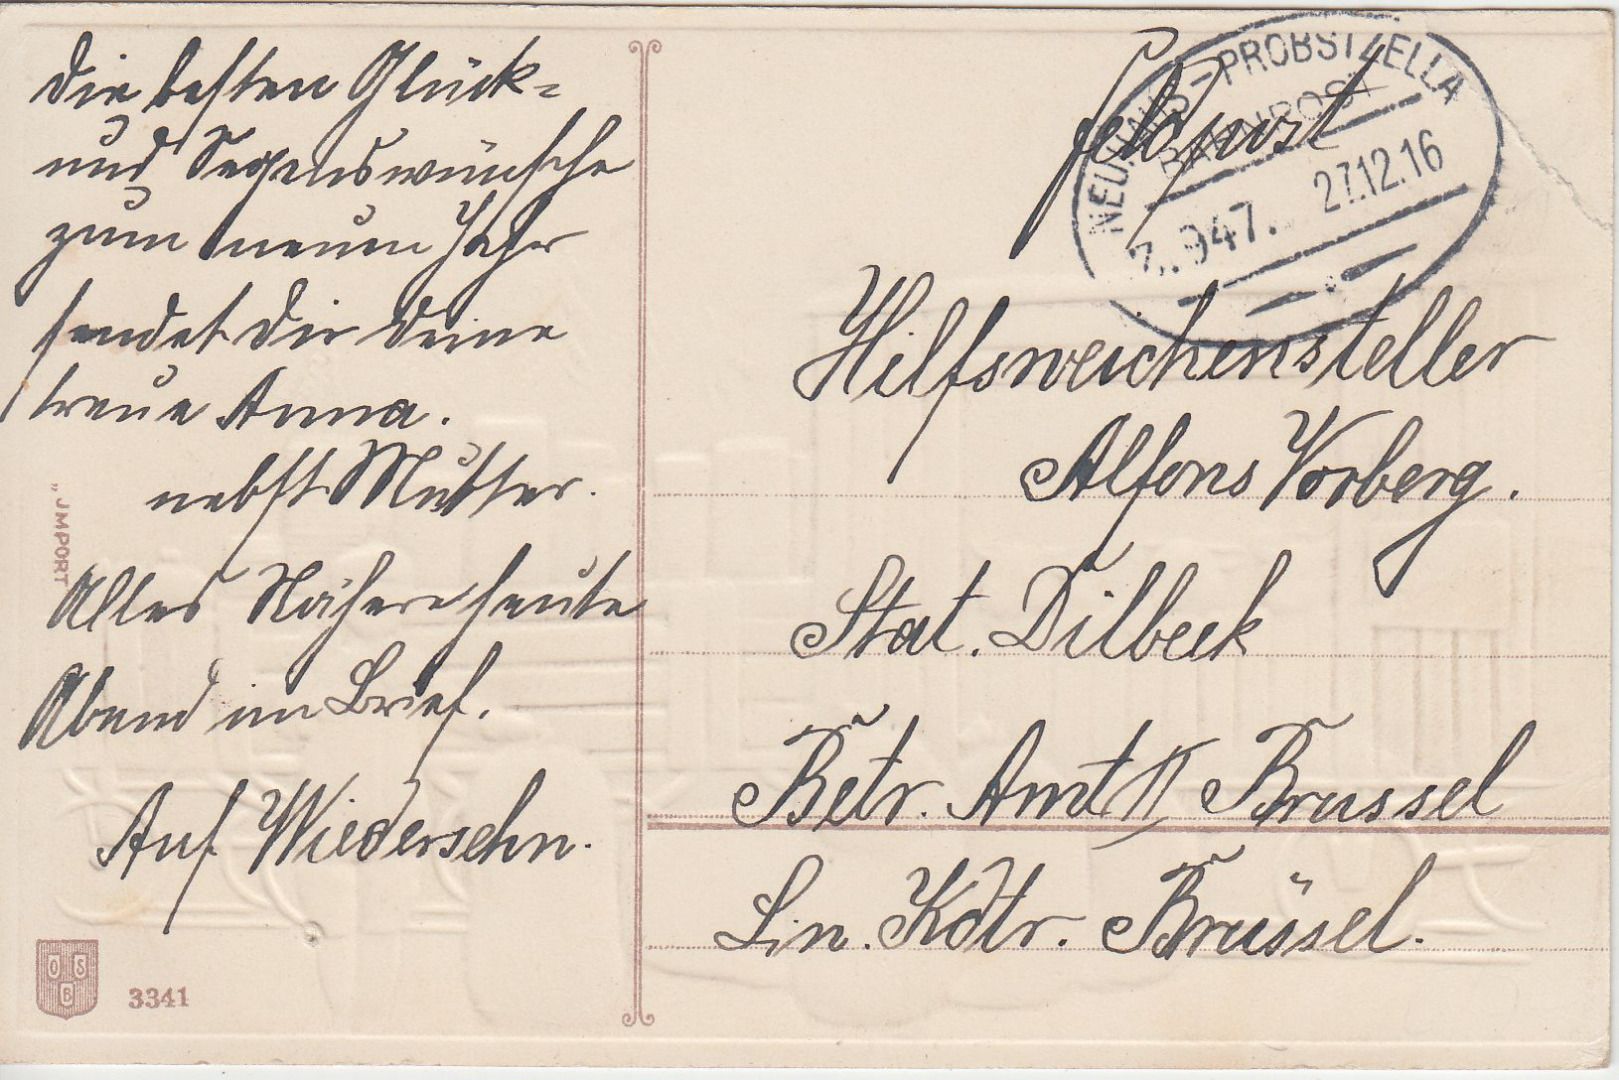 Die besten Glück-
und Segenswünsche
zum neuen Jahr
sendet Dir Deine
treue Anna.
nebst Mutter.
Alles Nähere heute
Abend im Brief.
Auf Wiedersehn.
"JMPORT
O S
B
3341
Feldpost
NEUHAUS-PROBSTZELLA
BAHNPOST
Z..947. 27.12.16
Hilfsweichensteller
Alfons Vorberg.
Stat. Dilbeek
Betr. Amt II Brussel
Lin. Kdtr. Brüssel.